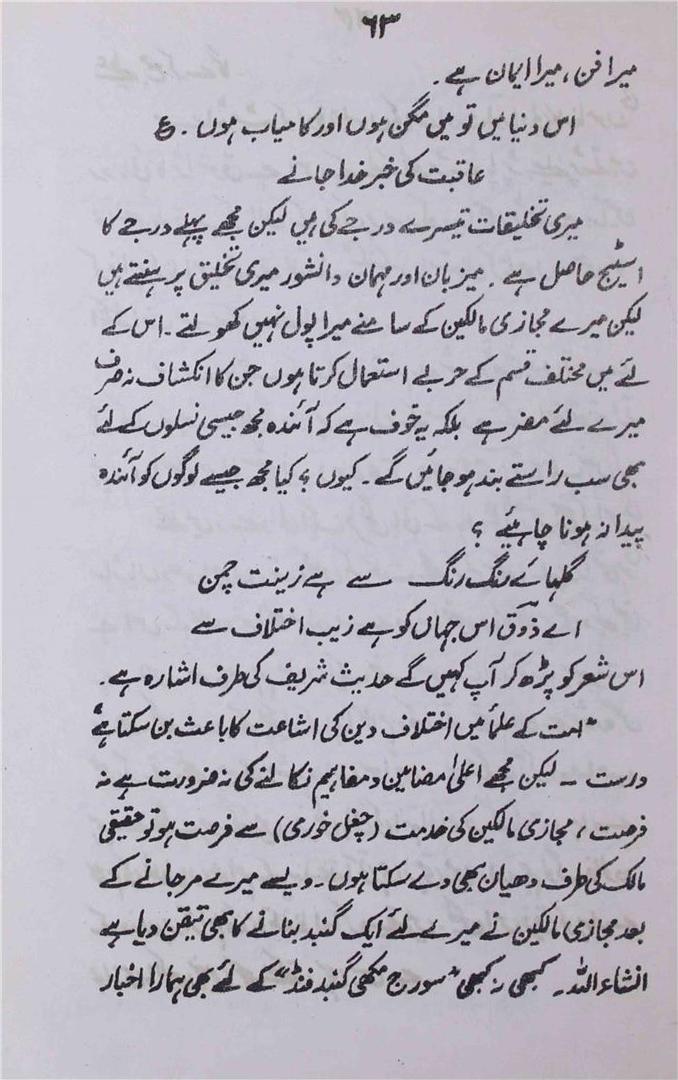 ۶۳
میرا فن، میرا ایمان ہے۔
اس دنیا میں تو میں مگن ہوں اور کامیاب ہوں۔ ع
عاقبت کی خبر خدا جانے
میری تخلیقات تیسرے درجے کی ہیں لیکن مجھے پہلے درجے کا
اسٹیج حاصل ہے۔ میزبان اور مہمان دانشور میری تخلیق پر ہنستے ہیں
لیکن میرے مجازی مالکین کے سامنے میرا پول نہیں کھولتے۔ اس کے
لئے میں مختلف قسم کے حربے استعمال کرتا ہوں جن کا انکشاف نہ صرف
میرے لئے مضر ہے بلکہ یہ خوف ہے کہ آئندہ مجھ جیسی نسلوں کے لئے
بھی سب راستے بند ہو جائیں گے۔ کیوں؟ کیا مجھ جیسے لوگوں کو آئندہ
پیدا نہ ہونا چاہئیے؟
گلہائے رنگ رنگ سے ہے زینت چمن
اے ذوقؔ اس جہاں کو ہے زیب اختلاف سے
اس شعر کو پڑھ کر آپ کہیں گے حدیث شریف کی طرف اشارہ ہے۔
"امت کے علمأ میں اختلاف دین کی اشاعت کا باعث بن سکتا ہے"
درست ــ لیکن مجھے اعلیٰ مضامین و مفاہیم نکالنے کی نہ ضرورت ہے نہ
فرصت، مجازی مالکین کی خدمت (چغل خوری) سے فرصت ہو تو حقیقی
مالک کی طرف دھیان بھی دے سکتا ہوں۔ ویسے میرے مر جانے کے
بعد مجازی مالکین نے میرے لئے ایک گنبد بنانے کا بھی تیقن دیا ہے
انشاء اللہ۔ کبھی نہ کبھی "سورج مکھی گنبد فنڈ" کے لئے بھی ہمارا اخبار